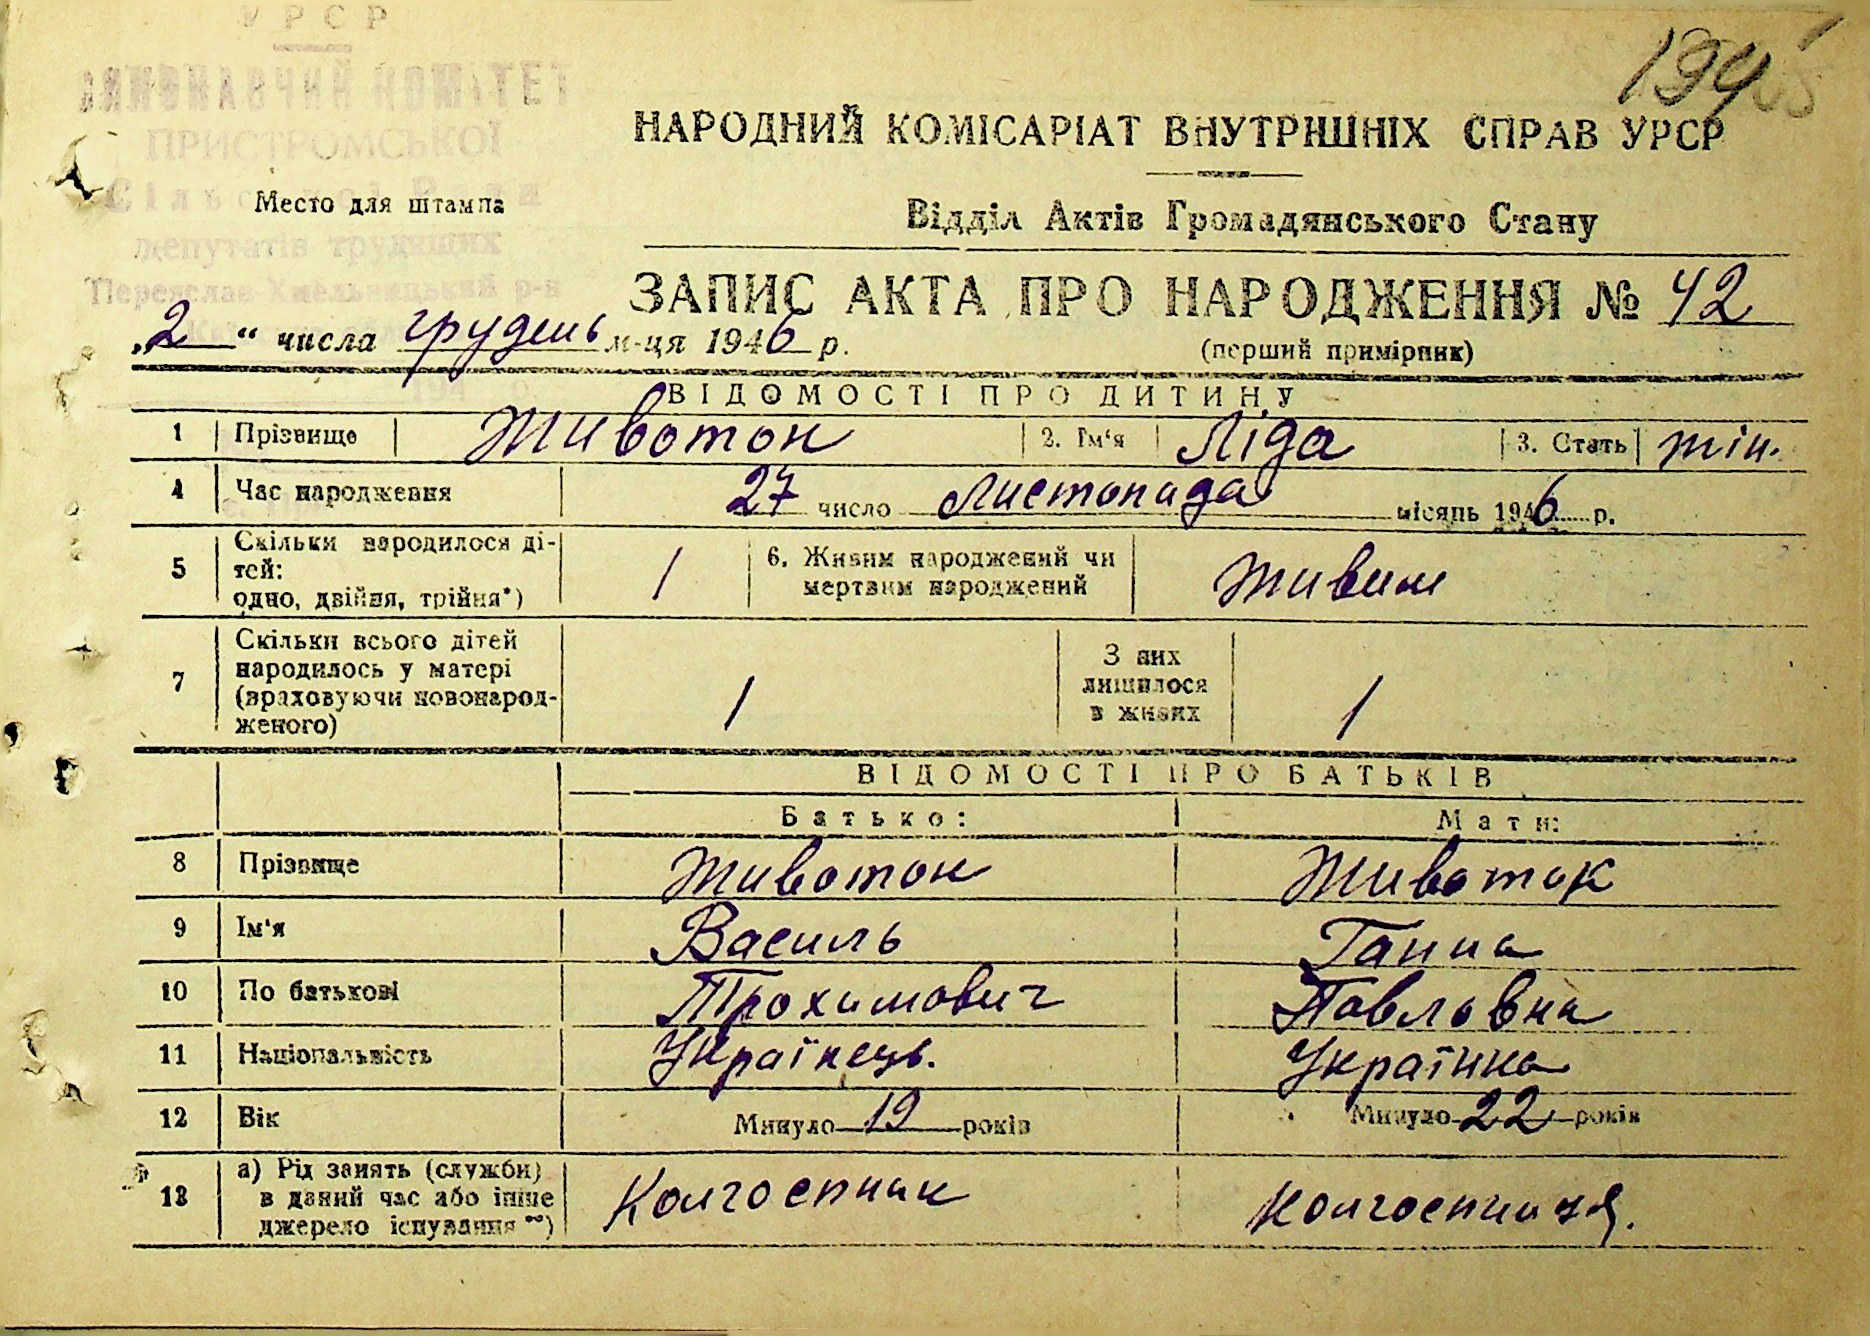 УРСР
ВИКОНАВЧИЙ КОМІТЕТ
ПРИСТРОМСЬКОЇ
Сільської Ради
депутатів трудящих
Переяслав-Хмельницький р-н
194
НАРОДНИЙ КОМІСАРІАТ ВНУТРІШНІХ СПРАВ УРСР
Место для штампа
Відділ Актів Громадянського Стану
ЗАПИС АКТА ПРО НАРОДЖЕННЯ № 42
„2“ числа грудень м-ця 1946 р.
(перший примірник)
ВІДОМОСТІ ПРО ДИТИНУ
1 Прізвище Животок 2. Ім'я Ліда 3. Стать жін.
4 Час народження 27 число Листопада місяць 1946 р.
5 Скільки народилося ді-
тей:
одно, двійня, трійня*) 1 6. Живим народжений чи
мертвим народжений Живим
7 Скільки всього дітей
народилось у матері
(враховуючи новонарод-
женого) 1 З них
лишилося
в живих 1
ВІДОМОСТІ ПРО БАТЬКІВ
Батько: Мати:
8 Прізвище Животок Животок
9 Ім'я Василь Ганна
10 По батькові Трохимович Павловна
11 Національність Українець. Українка
12 Вік Минуло 19 років Минуло 22 років
13 а) Рід занять (служби)
в даний час або інше
джерело існування **) Колгоспник Колгоспниця.